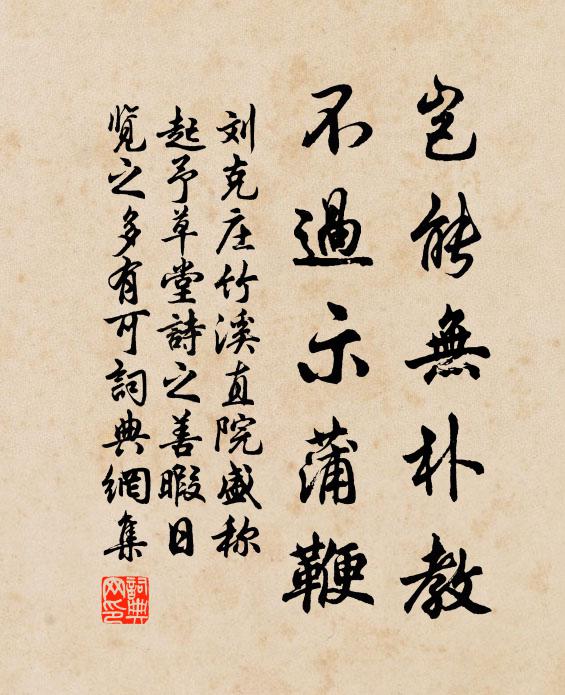 豈能無朴教
不過示蒲鞭
刘克庄竹溪直院盛称
起予草堂詩之善暇日
覽之多有可詞典網集
詞典
网印